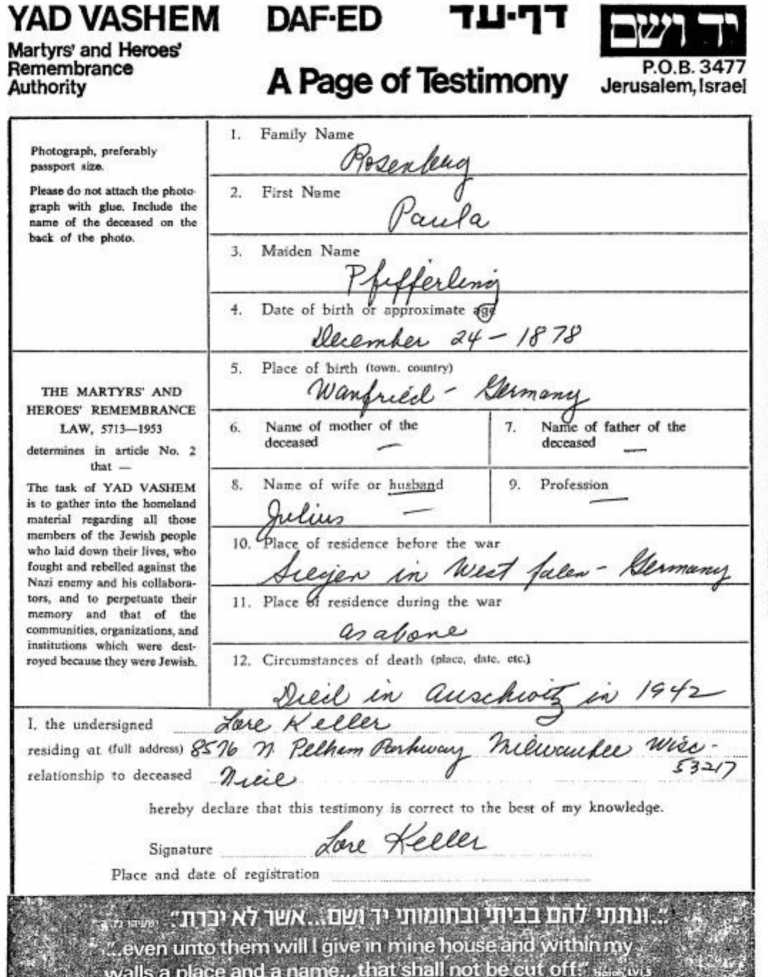 YAD VASHEM DAF-ED דף-עד יד ושם
Martyrs' and Heroes'
Remembrance
Authority
A Page of Testimony
P.O.B. 3477
Jerusalem, Israel
Photograph, preferably
passport size.
Please do not attach the photo-
graph with glue. Include the
name of the deceased on the
back of the photo.
1. Family Name
Rosenberg
2. First Name
Paula
3. Maiden Name
Pfifferling
4. Date of birth or approximate age
December 24 - 1878
THE MARTYRS' AND
HEROES' REMEMBRANCE
LAW, 5713—1953
determines in article No. 2
that —
The task of YAD VASHEM
is to gather into the homeland
material regarding all those
members of the Jewish people
who laid down their lives, who
fought and rebelled against the
Nazi enemy and his collabora-
tors, and to perpetuate their
memory and that of the
communities, organizations, and
institutions which were dest-
royed because they were Jewish.
5. Place of birth (town, country)
Wanfried - Germany
6. Name of mother of the
deceased —
7. Name of father of the
deceased —
8. Name of wife or husband
Julius —
9. Profession
—
10. Place of residence before the war
Siegen in West falen - Germany
11. Place of residence during the war
as above
12. Circumstances of death (place, date, etc.)
Died in Auschwitz in 1942
I, the undersigned Lore Keller
residing at (full address) 8576 N Pelham Parkway Milwaukee Wisc-
53217
relationship to deceased Niece
hereby declare that this testimony is correct to the best of my knowledge.
Signature Lore Keller
Place and date of registration
"...ונתתי להם בביתי ובחומותי יד ושם...אשר לא יכרת."
"...even unto them will I give in mine house and within my
walls a place and a name...that shall not be cut off."